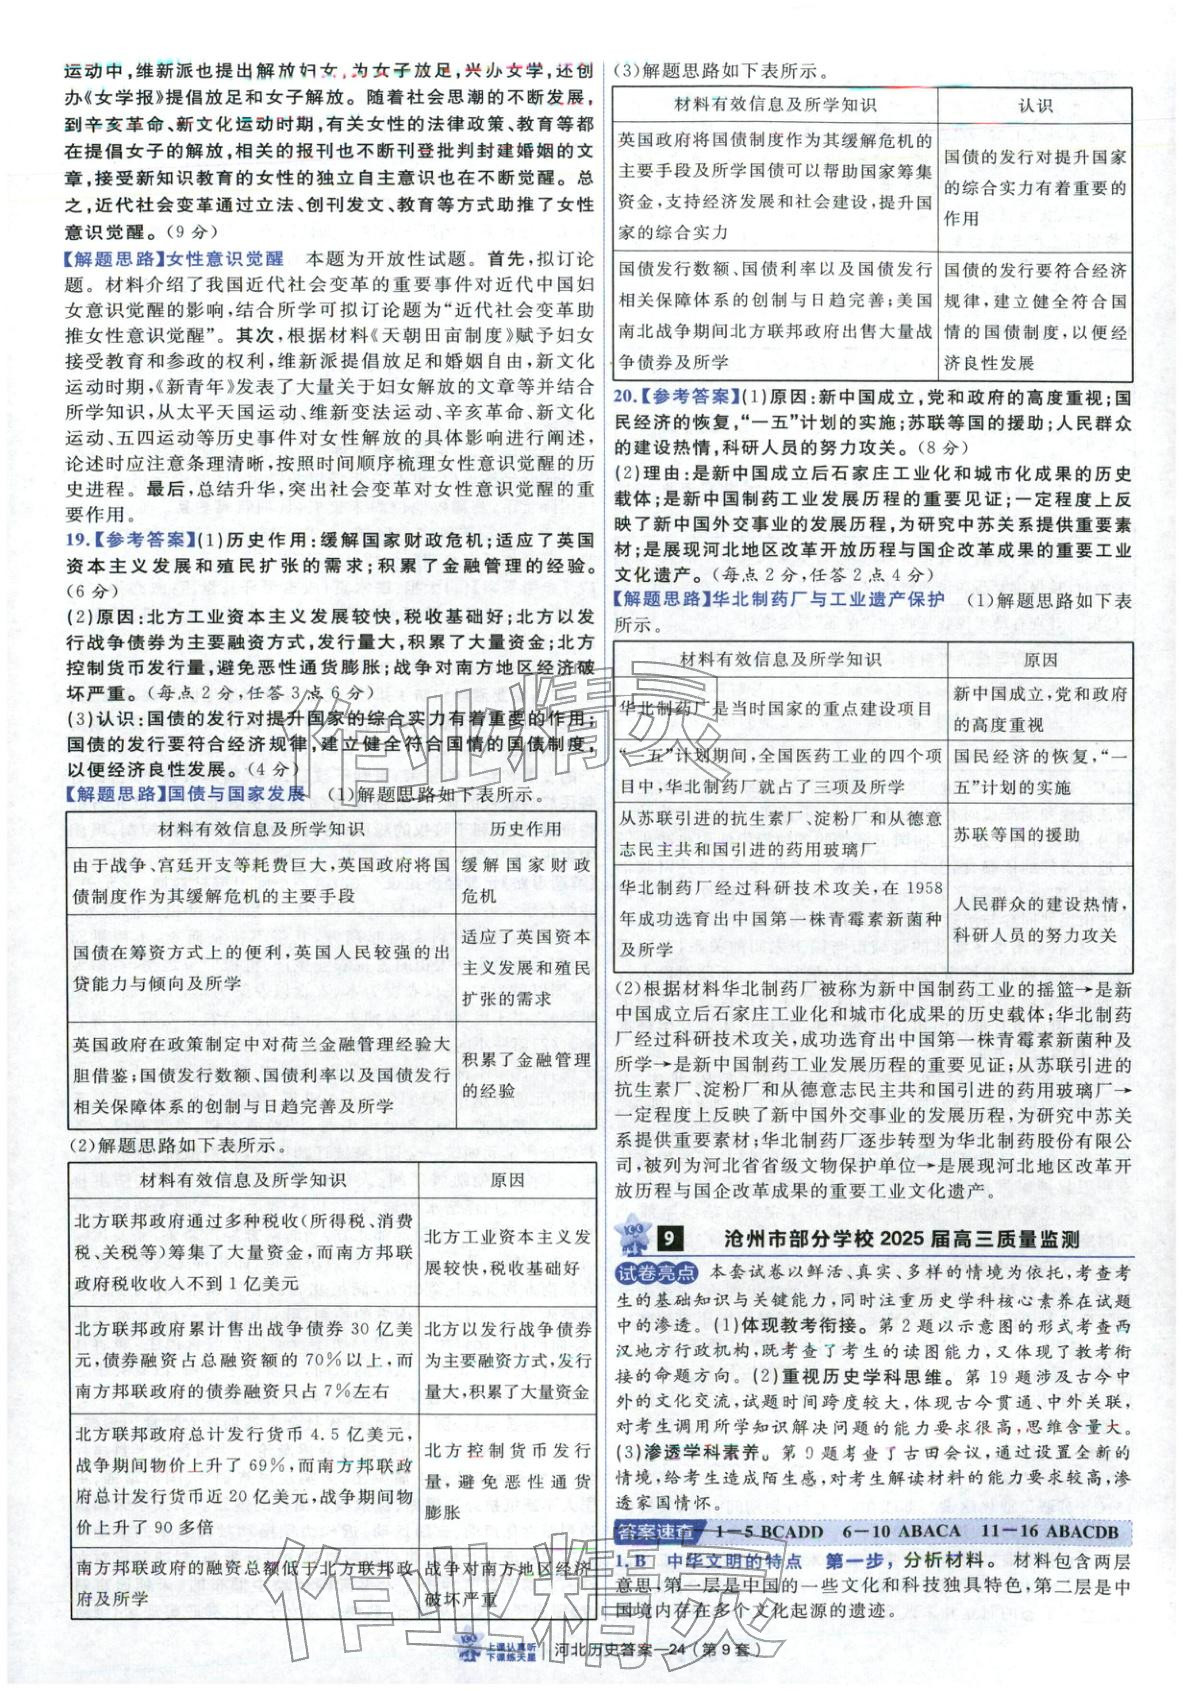 运动中,维新派也提出解放妇女,为女子放足,兴办女学,还创
办《女学报》提倡放足和女子解放。随着社会思潮的不断发展,
到辛亥革命、新文化运动时期,有关女性的法律政策、教育等都
在提倡女子的解放,相关的报刊也不断刊登批判封建婚姻的文
章,接受新知识教育的女性的独立自主意识也在不断觉醒。总
之,近代社会变革通过立法、创刊发文、教育等方式助推了女性
意识觉醒。(9分)
【解题思路】女性意识觉醒 本题为开放性试题。首先,拟订论
题。材料介绍了我国近代社会变革的重要事件对近代中国妇
女意识觉醒的影响,结合所学可拟订论题为“近代社会变革助
推女性意识觉醒”。其次,根据材料《天朝田亩制度》赋予妇女
接受教育和参政的权利,维新派提倡放足和婚姻自由,新文化
运动时期,《新青年》发表了大量关于妇女解放的文章等并结合
所学知识,从太平天国运动、维新变法运动、辛亥革命、新文化
运动、五四运动等历史事件对女性解放的具体影响进行阐述,
论述时应注意条理清晰,按照时间顺序梳理女性意识觉醒的历
史进程。最后,总结升华,突出社会变革对女性意识觉醒的重
要作用。
19.【参考答案】(1)历史作用:缓解国家财政危机;适应了英国
资本主义发展和殖民扩张的需求;积累了金融管理的经验。
(6分)
(2)原因:北方工业资本主义发展较快,税收基础好;北方以发
行战争债券为主要融资方式,发行量大,积累了大量资金;北方
控制货币发行量,避免恶性通货膨胀;战争对南方地区经济破
坏严重。(每点2分,任答3点6分)
(3)认识:国债的发行对提升国家的综合实力有着重要的作用;
国债的发行要符合经济规律,建立健全符合国情的国债制度,
以便经济良性发展。(4分)
【解题思路】国债与国家发展 (1)解题思路如下表所示。
材料有效信息及所学知识 历史作用
由于战争、宫廷开支等耗费巨大,英国政府将国 缓解国家财政
债制度作为其缓解危机的主要手段 危机
国债在筹资方式上的便利,英国人民较强的出
贷能力与倾向及所学
适应了英国资本
主义发展和殖民
扩张的需求
英国政府在政策制定中对荷兰金融管理经验大
胆借鉴;国债发行数额、国债利率以及国债发行
相关保障体系的创制与日趋完善及所学
积累了金融管理
的经验
(2)解题思路如下表所示。
材料有效信息及所学知识 原因
北方联邦政府通过多种税收(所得税、消费
税、关税等)筹集了大量资金,而南方邦联
政府税收收入不到1亿美元
北方工业资本主义发
展较快,税收基础好
北方联邦政府累计售出战争债券30亿美
元,债券融资占总融资额的70%以上,而
南方邦联政府的债券融资只占7%左右
北方以发行战争债券
为主要融资方式,发行
量大,积累了大量资金
北方联邦政府总计发行货币4.5亿美元,
战争期间物价上升了69%,而南方邦联政
府总计发行货币近20亿美元,战争期间物
价上升了90多倍
北方控制货币发行
量,避免恶性通货
膨胀
南方邦联政府的融资总额低于北方联邦政
府及所学
战争对南方地区经济
破坏严重
(3)解题思路如下表所示。
材料有效信息及所学知识 认识
英国政府将国债制度作为其缓解危机的
主要手段及所学国债可以帮助国家筹集
资金,支持经济发展和社会建设,提升国
家的综合实力
国债的发行对提升国家
的综合实力有着重要的
作用
国债发行数额、国债利率以及国债发行
相关保障体系的创制与日趋完善;美国
南北战争期间北方联邦政府出售大量战
争债券及所学
国债的发行要符合经济
规律,建立健全符合国
情的国债制度,以便经
济良性发展
20.【参考答案】(1)原因:新中国成立,党和政府的高度重视;国
民经济的恢复,“一五”计划的实施;苏联等国的援助;人民群众
的建设热情,科研人员的努力攻关。(8分)
(2)理由:是新中国成立后石家庄工业化和城市化成果的历史
载体;是新中国制药工业发展历程的重要见证;一定程度上反
映了新中国外交事业的发展历程,为研究中苏关系提供重要素
材;是展现河北地区改革开放历程与国企改革成果的重要工业
文化遗产。(每点2分,任答2点4分)
【解题思路】华北制药厂与工业遗产保护 (1)解题思路如下表
所示。
材料有效信息及所学知识 原因
华北制药厂是当时国家的重点建设项目
新中国成立,党和政府
的高度重视
“一五”计划期间,全国医药工业的四个项
目中,华北制药厂就占了三项及所学
国民经济的恢复,“一
五”计划的实施
从苏联引进的抗生素厂、淀粉厂和从德意
志民主共和国引进的药用玻璃厂
苏联等国的援助
华北制药厂经过科研技术攻关,在1958
年成功选育出中国第一株青霉素新菌种
及所学
人民群众的建设热情,
科研人员的努力攻关
(2)根据材料华北制药厂被称为新中国制药工业的摇篮→是新
中国成立后石家庄工业化和城市化成果的历史载体;华北制药
厂经过科研技术攻关,成功选育出中国第一株青霉素新菌种及
所学→是新中国制药工业发展历程的重要见证;从苏联引进的
抗生素厂、淀粉厂和从德意志民主共和国引进的药用玻璃厂→
一定程度上反映了新中国外交事业的发展历程,为研究中苏关
系提供重要素材;华北制药厂逐步转型为华北制药股份有限公
司,被列为河北省省级文物保护单位→是展现河北地区改革开
放历程与国企改革成果的重要工业文化遗产。
9 沧州市部分学校2025届高三质量监测
试卷亮点 本套试卷以鲜活、真实、多样的情境为依托,考查考
生的基础知识与关键能力,同时注重历史学科核心素养在试题
中的渗透。(1)体现教考衔接。第2题以示意图的形式考查西
汉地方行政机构,既考查了考生的读图能力,又体现了教考衔
接的命题方向。(2)重视历史学科思维。第19题涉及古今中
外的文化交流,试题时间跨度较大,体现古今贯通、中外关联,
对考生调用所学知识解决问题的能力要求很高,思维含量大。
(3)渗透学科素养。第9题考查了古田会议,通过设置全新的
情境,给考生造成陌生感,对考生解读材料的能力要求较高,渗
透家国情怀。
答案速查 1—5 BCADD 6—10 ABACA 11—16 ABACDB
1. B 中华文明的特点 第一步,分析材料。材料包含两层
意思,第一层是中国的一些文化和科技独具特色,第二层是中
国境内存在多个文化起源的遗迹。
上课认真听
下课练天星
河北历史答案—24(第9套)
作业精灵
作业精灵